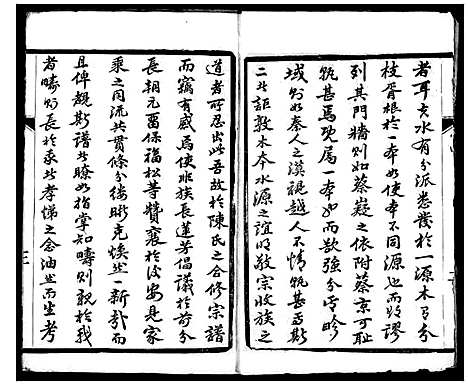 者耳夫水有分派悉發於一源木多分
枝胥根於一本如使本不同源也而謬
列其門牆則如蔡嶷之依附蔡京可耻
孰甚焉既属一本而欲強分畛
域如秦人之漠視越人不情孰甚焉斯
二者詎敦本木水源之誼明敬宗收族之
道者所忍出此吾故於陳氏之合修宗譜
而竊有感焉使非族長蓮芳倡議於前分
長朝元國保福松等贊襄於後安見家
乘之同流共貫條分縷晰克煥然一新哉而
且俾觀斯譜者瞭如指掌知疇則親於我
者疇則長於我者孝悌之念油然而生考